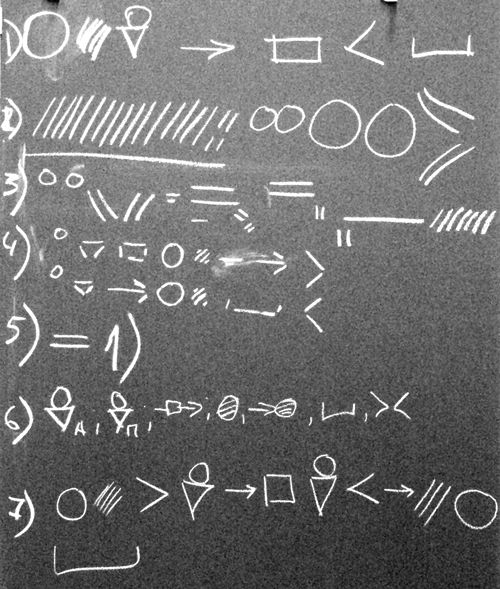 1)
2)
3)
4)
5) = 1)
6) А, П,
7)